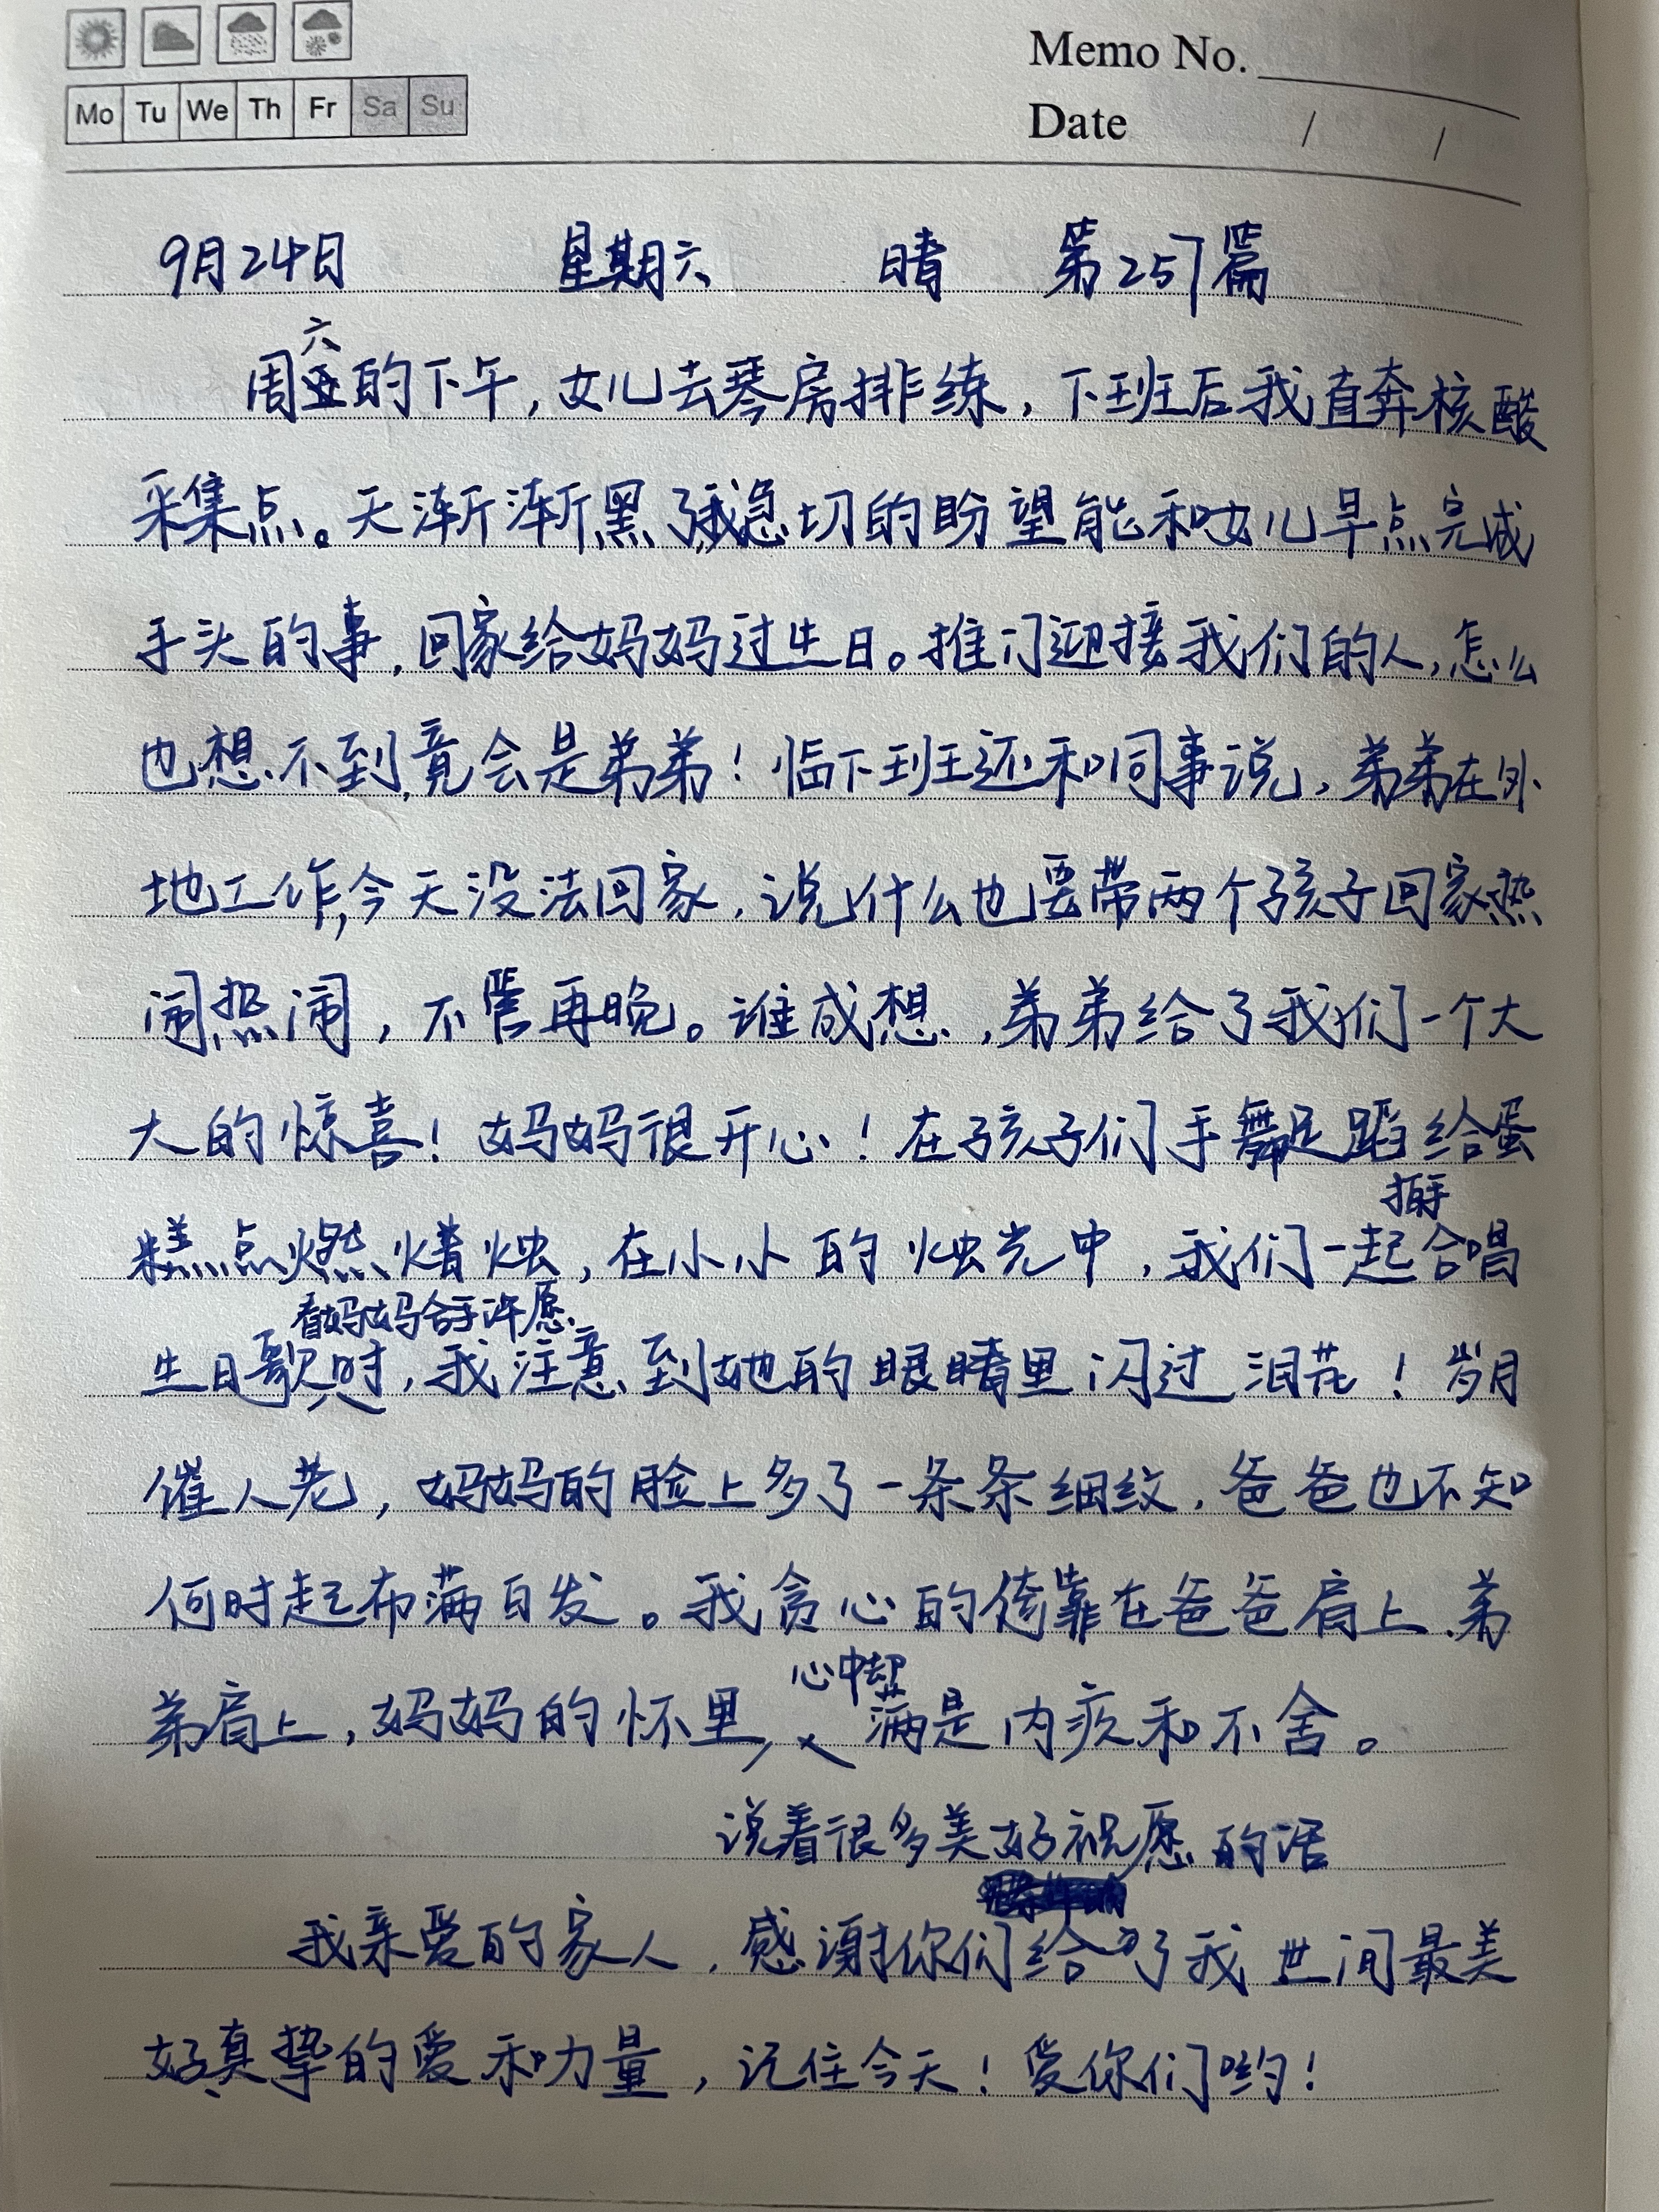 Mo Tu We Th Fr Sa Su
Memo No.
Date / /
9月24日 星期六 晴 第257篇
六
周五的下午,女儿去琴房排练,下班后我直奔核酸
采集点。天渐渐黑了,我急切的盼望能和女儿早点完成
手头的事,回家给妈妈过生日。推门迎接我们的人,怎么
也想不到,竟会是弟弟!临下班还和同事说,弟弟在外
地工作,今天没法回家,说什么也要带两个孩子回家热
闹热闹,不管再晚。谁成想,弟弟给了我们一个大
大的惊喜!妈妈很开心!在孩子们手舞足蹈给蛋
拍手
糕点燃蜡烛,在小小的烛光中,我们一起合唱
看妈妈合手许愿
生日歌时,我注意到她的眼睛里闪过泪花!岁月
催人老,妈妈的脸上多了一条条细纹,爸爸也不知
何时起布满白发。我贪心的倚靠在爸爸肩上、弟
心中却
弟肩上,妈妈的怀里,满是内疚和不舍。
说着很多美好祝愿的话
我亲爱的家人,感谢你们给了我世间最美
好真挚的爱和力量,记住今天!爱你们哟!